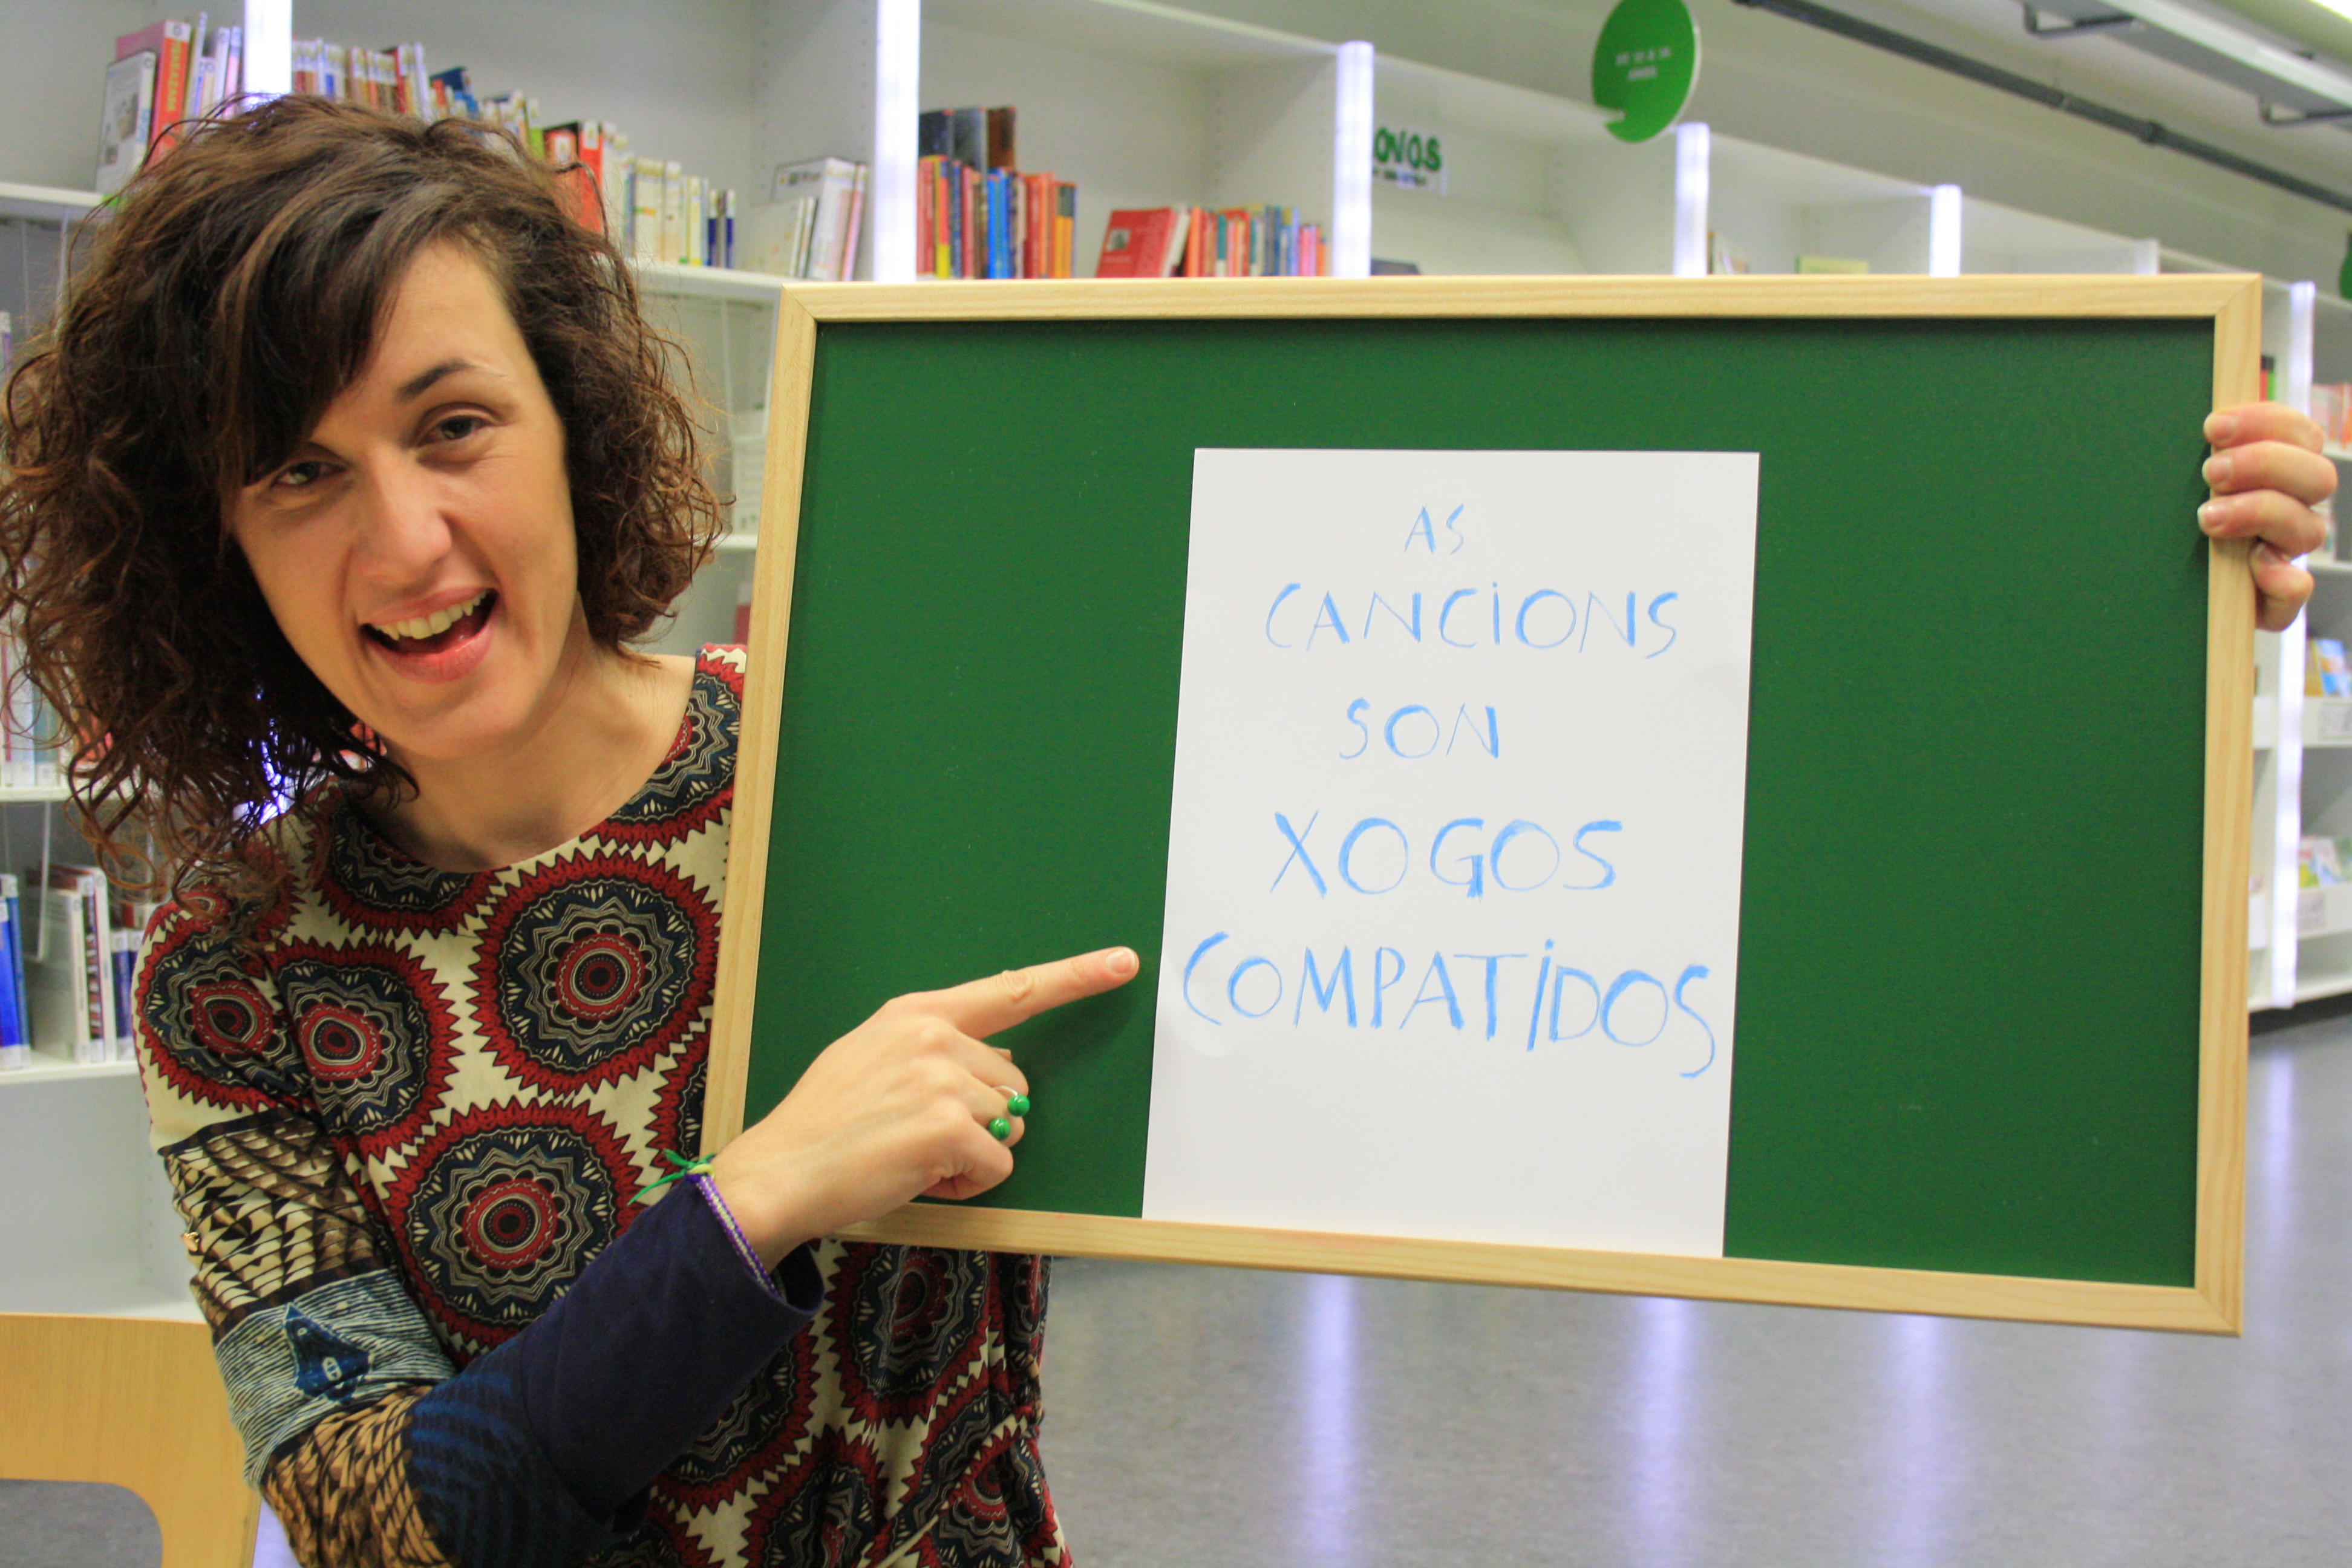 AS
CANCIONS
SON
XOGOS
COMPATIDOS
OVOS